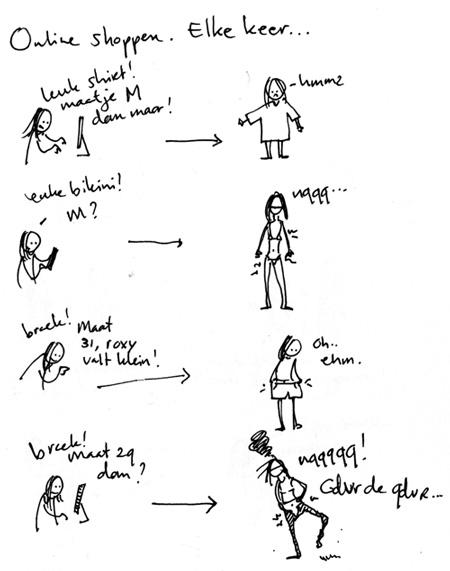 Online shoppen. Elke keer...
leuk shirt!
maatje M
dan maar!
- hmmz
leuke bikini!
M?
nggg...
broek!
Maat
31, roxy
valt klein!
Oh..
ehm.
broek!
maat 29
dan?
nggggg!
Gdvr de gdvr...